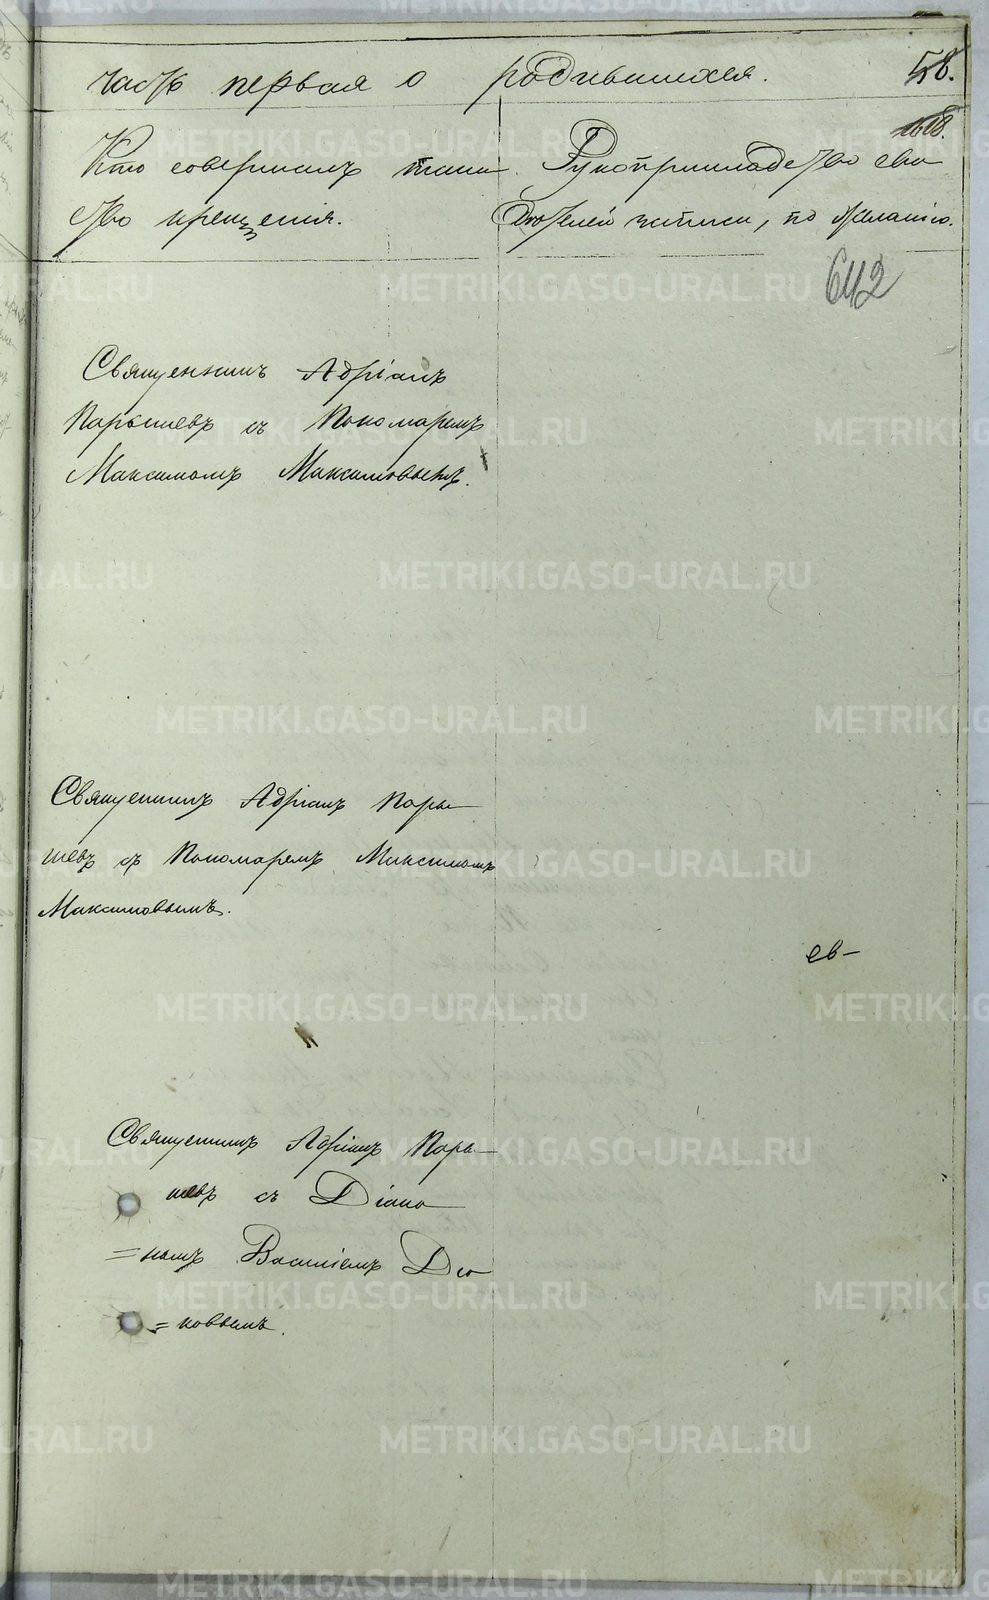 часть первая о родившихся. 58.
Кто совершалъ таин- Рукоприкладство сви-
ство крещенія. дѣтелей записи, по желанію.
642
Священникъ Адріанъ
Парышевъ съ Пономаремъ
Максимомъ Максимовымъ.
Священникъ Адріанъ Пары-
шевъ съ Пономаремъ Максимомъ
Максимовымъ.
ев-
Священникъ Адріанъ Пары-
шевъ съ Діако-
=номъ Василіемъ Дю-
=ковымъ.
METRIKI.GASO-URAL.RU